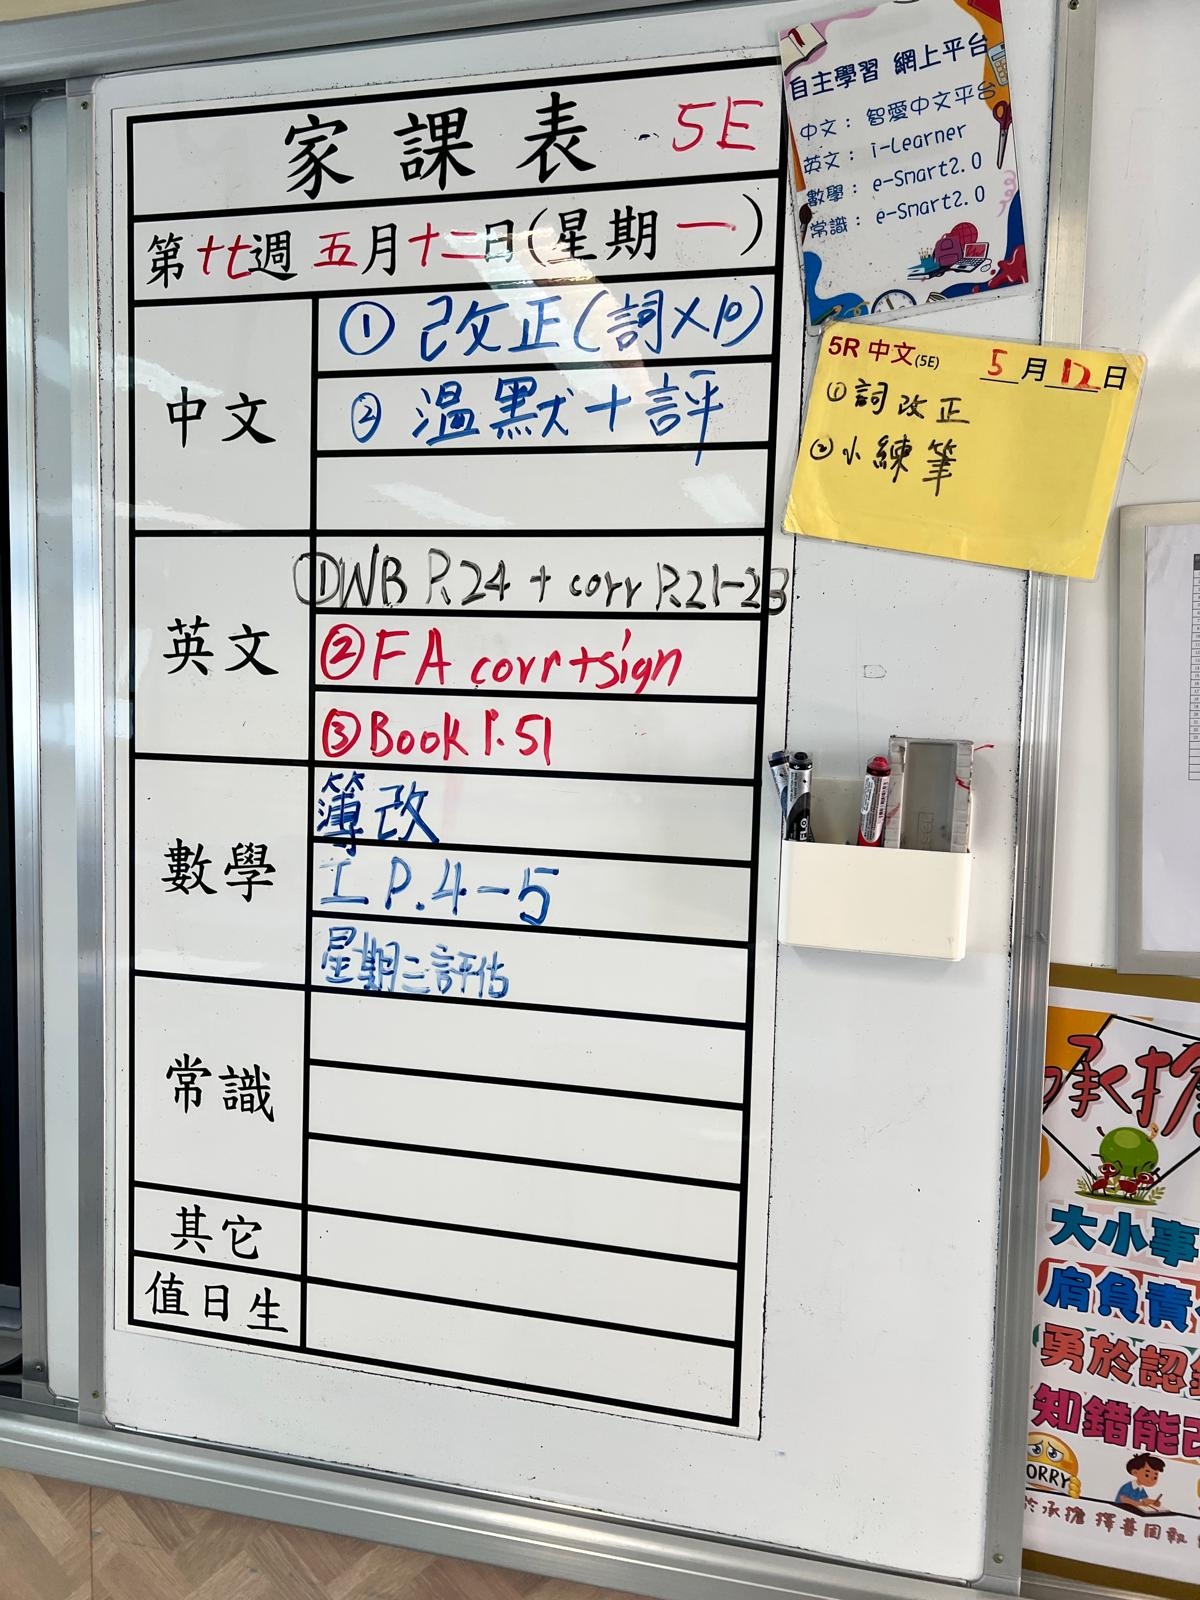 家課表 5E
第十七週 五月十二日(星期一)
中文
① 改正(詞×10)
② 溫默+評
英文
①WB P.24 + corr P.21-23
②FA corr+sign
③Book P.51
數學
簿改
工 P.4-5
星期三評估
常識
其它
值日生
自主學習 網上平台
中文：智愛中文平台
英文：i-Learner
數學：e-Smart2.0
常識：e-Smart2.0
5R 中文(5E) 5月12日
①詞改正
②小練筆
承擔
大小事
肩負責
勇於認
知錯能改
ORRY
於承擔 擇善固執